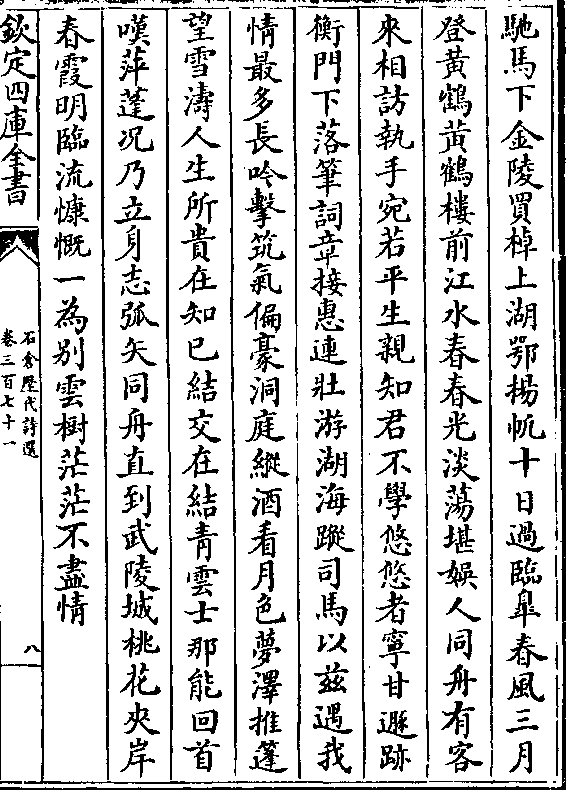 馳馬下金陵買棹上湖鄂揚帆十日過臨臯春風三月
登黄鶴黄鶴樓前江水春春光淡蕩堪娛人同舟有客
來相訪執手宛若平生親知君不學悠悠者寧甘遯跡
衡門下落筆詞章接惠連壯游湖海蹤司馬以兹遇我
情最多長吟擊筑氣偏豪洞庭縱酒看月色夢澤推蓬
望雪濤人生所貴在知已結交在結青雲士那能回首
嘆萍蓬况乃立身志弧矢同舟直到武陵城桃花夾岸
春霞明臨流慷慨一為别雲樹茫茫不盡情
欽定四庫全書
石倉歷代詩選
卷三百七十一
八